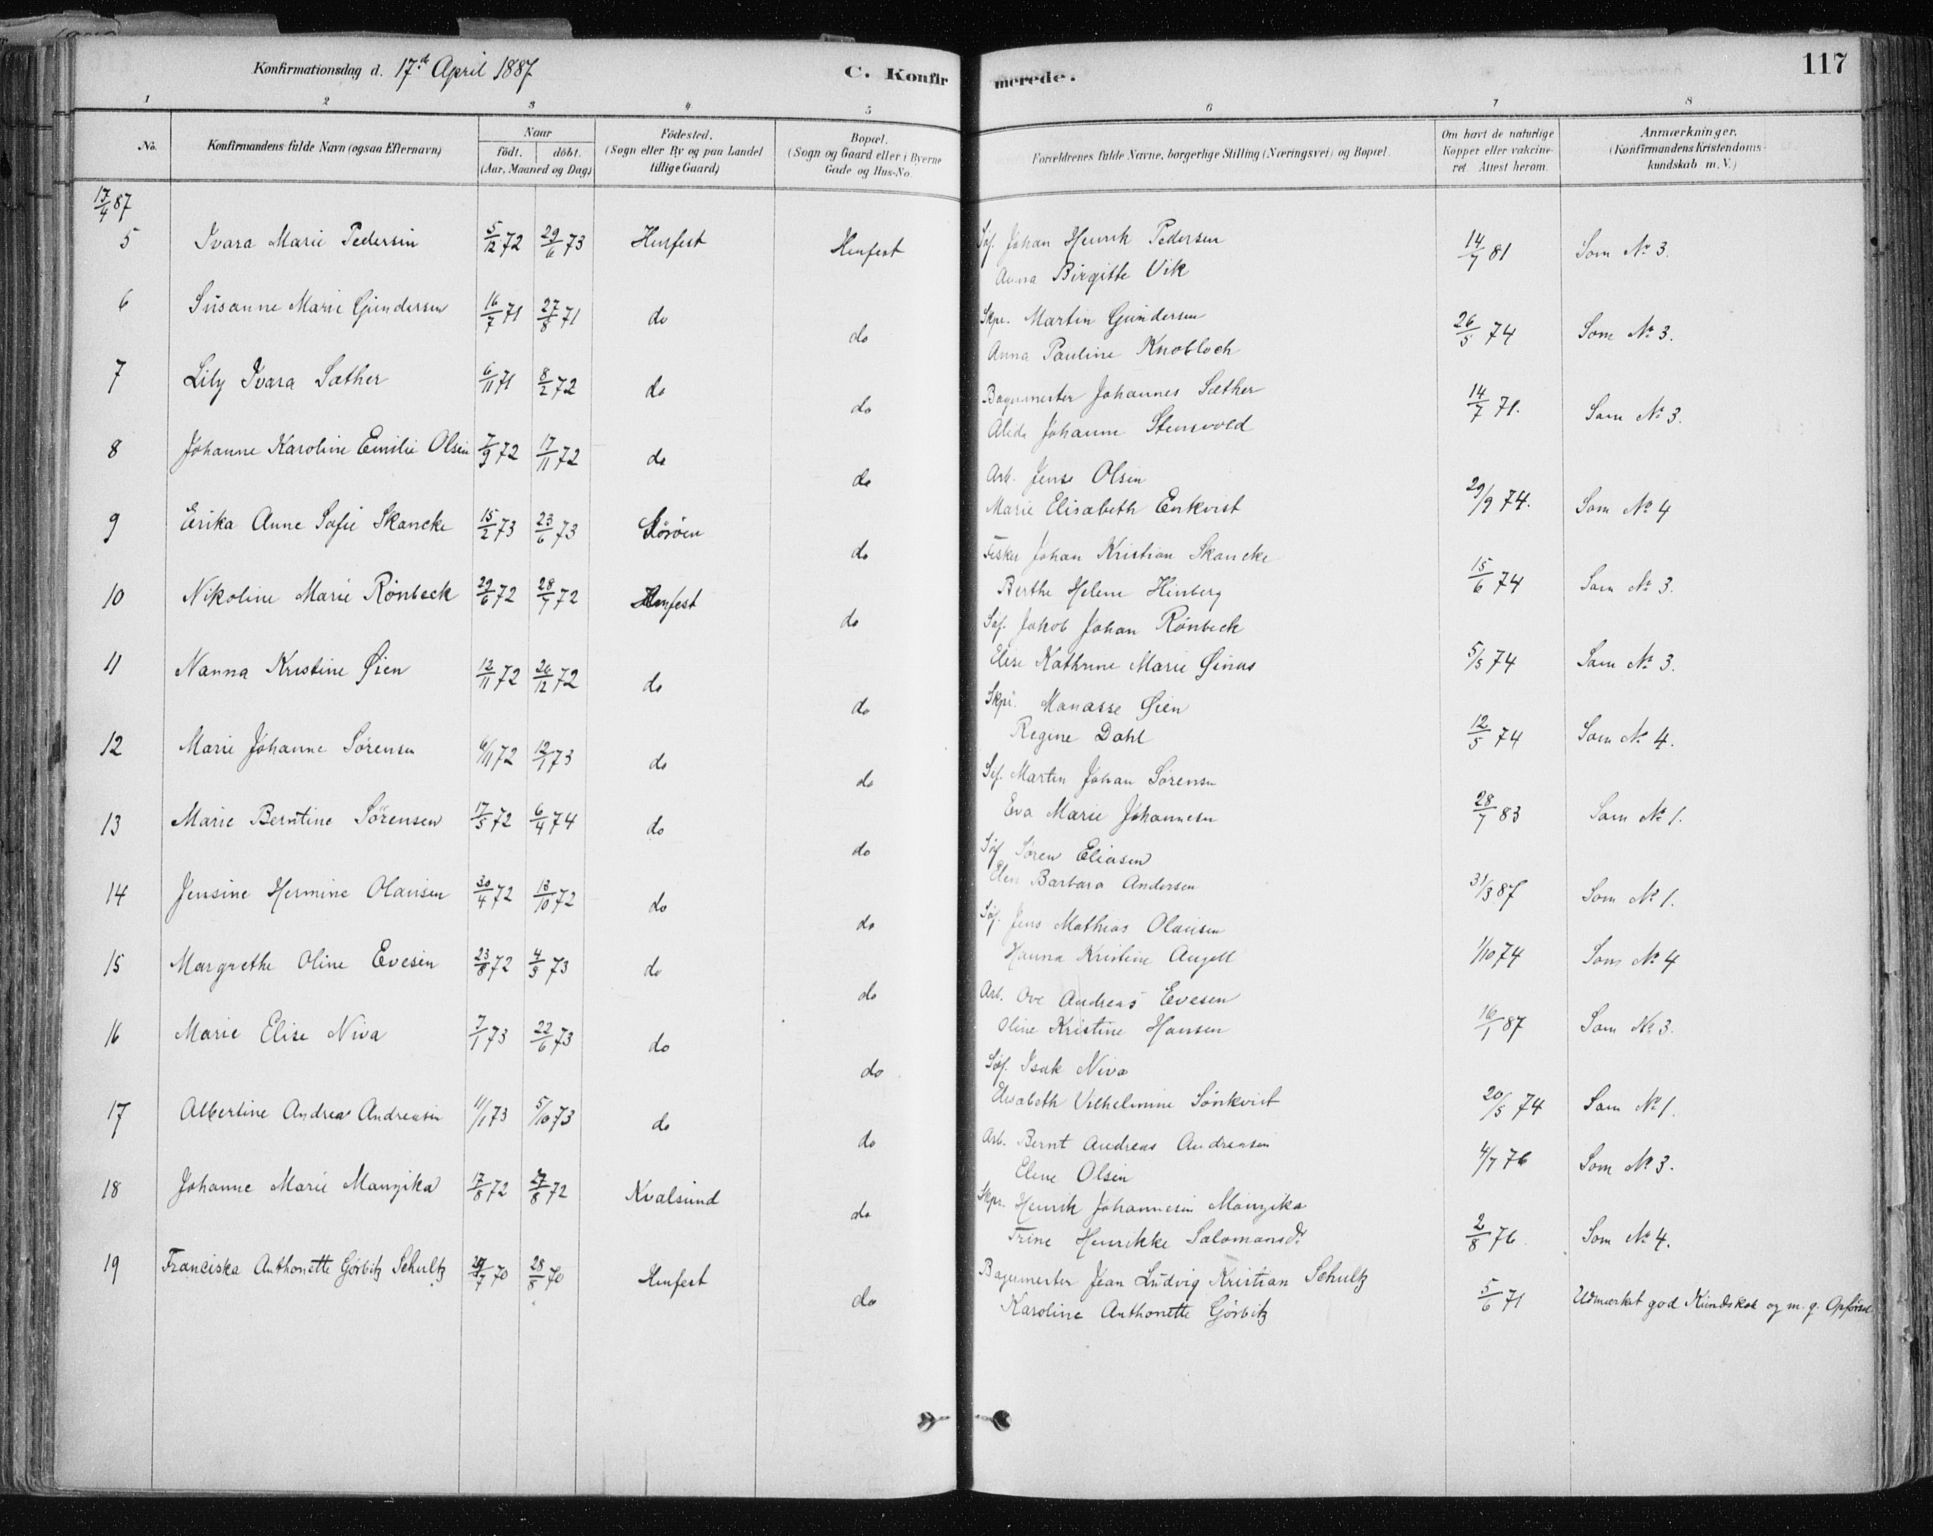 Konfirmationsdag d. 17de April 1887 C. Konfir merede. 117
1 2 3 4 5 6 7 8
No.
Konfirmandens fulde Navn (ogsaa Efternavn)
Naar
födt. döbt.
(Aar, Maaned og Dag)
Födested.
(Sogn eller By og paa Landet
tillige Gaard)
Bopæl.
(Sogn og Gaard eller i Byerne
Gade og Hus-No.
Forældrenes fulde Navne, borgerlige Stilling (Næringsvei) og Bopæl.
Om havt de naturlige
Kopper eller vakcine-
ret. Attest herom.
Anmærkninger.
(Konfirmandens Kristendoms-
kundskab m. V.)
17/4 87
5 Ivara Marie Pedersen 5/12 72 29/6 73 Hmfest Hmfest Søf. Johan Henrik Pedersen 14/7 81 Som No 3.
Anna Birgitte Vik
6 Susanne Marie Gundersen 16/7 71 27/8 71 do do Skpr. Martin Gundersen 26/5 74 Som No 3.
Anna Pauline Knobloch
7 Lily Ivara Sæther 6/11 71 8/2 72 do do Bagermester Johannes Sæther 14/7 71. Som No 3.
Alida Johanne Stensvold
8 Johanne Karoline Emilie Olsen 7/9 72 17/11 72 do do Arb. Jens Olsen 29/9 74. Som No 4
Marie Elisabeth Enkvist
9 Erika Anne Sofie Skancke 15/2 73 23/6 73 Sörøen do Fisker Johan Kristian Skancke 15/6 74 Som No 3.
Berthe Helene Hinberg
10 Nikoline Marie Rønbeck 29/6 72 28/7 72 Hmfest do Søf. Jakob Johan Rönbeck 5/5 74 Som No 3.
Elise Kathrine Marie
11 Nanna Kristine Øien 12/11 72 26/12 72 do do Skpr. Manasse Øien 12/5 74 Som No 4.
Regine Dahl
12 Marie Johanne Sørensen 6/11 72 12/1 73 do do Søf. Martin Johan Sörensen 28/7 83 Som No 1.
Eva Marie Johannesen
13 Marie Berntine Sørensen 17/5 72 6/4 74 do do Søf. Sören Eliasen 31/3 87 Som No 1.
Elen Barbara Andersen
14 Jensine Hermine Olausen 30/4 72 13/10 72 do do Søf. Jens Mathias Olausen 1/10 74 Som No 4
Hanna Kristine Angell
15 Margrethe Oline Evesen 23/8 72 4/9 73 do do Arb. Ove Andreas Evesen 16/1 87 Som No 3.
Oline Kristine Hansen
16 Marie Elise Niva 7/1 73 22/6 73 do do Søf. Isak Niva 20/5 74 Som No 1.
Elisabeth Vilhelmine Sönkvist
17 Albertine Andrea Andreasen 11/1 73 5/10 73 do do Arb. Bernt Andreas Andreasen 4/7 76 Som No 3.
Elene Olsen
18 Johanne Marie Manzika 17/8 72 27/8 72 Kvalsund do Skpr. Henrik Johannesen Manzika 2/8 76. Som No 4.
Trine Henrikke Salomonsdr
19 Franciska Anthonette Görbitz Schultz 29/7 70 28/8 70 Hmfest do Bagermester Jean Ludvig Kristian Schultz 5/6 71 Udmærket god Kundskab og m. g. Opførsel
Karoline Anthonette Görbitz